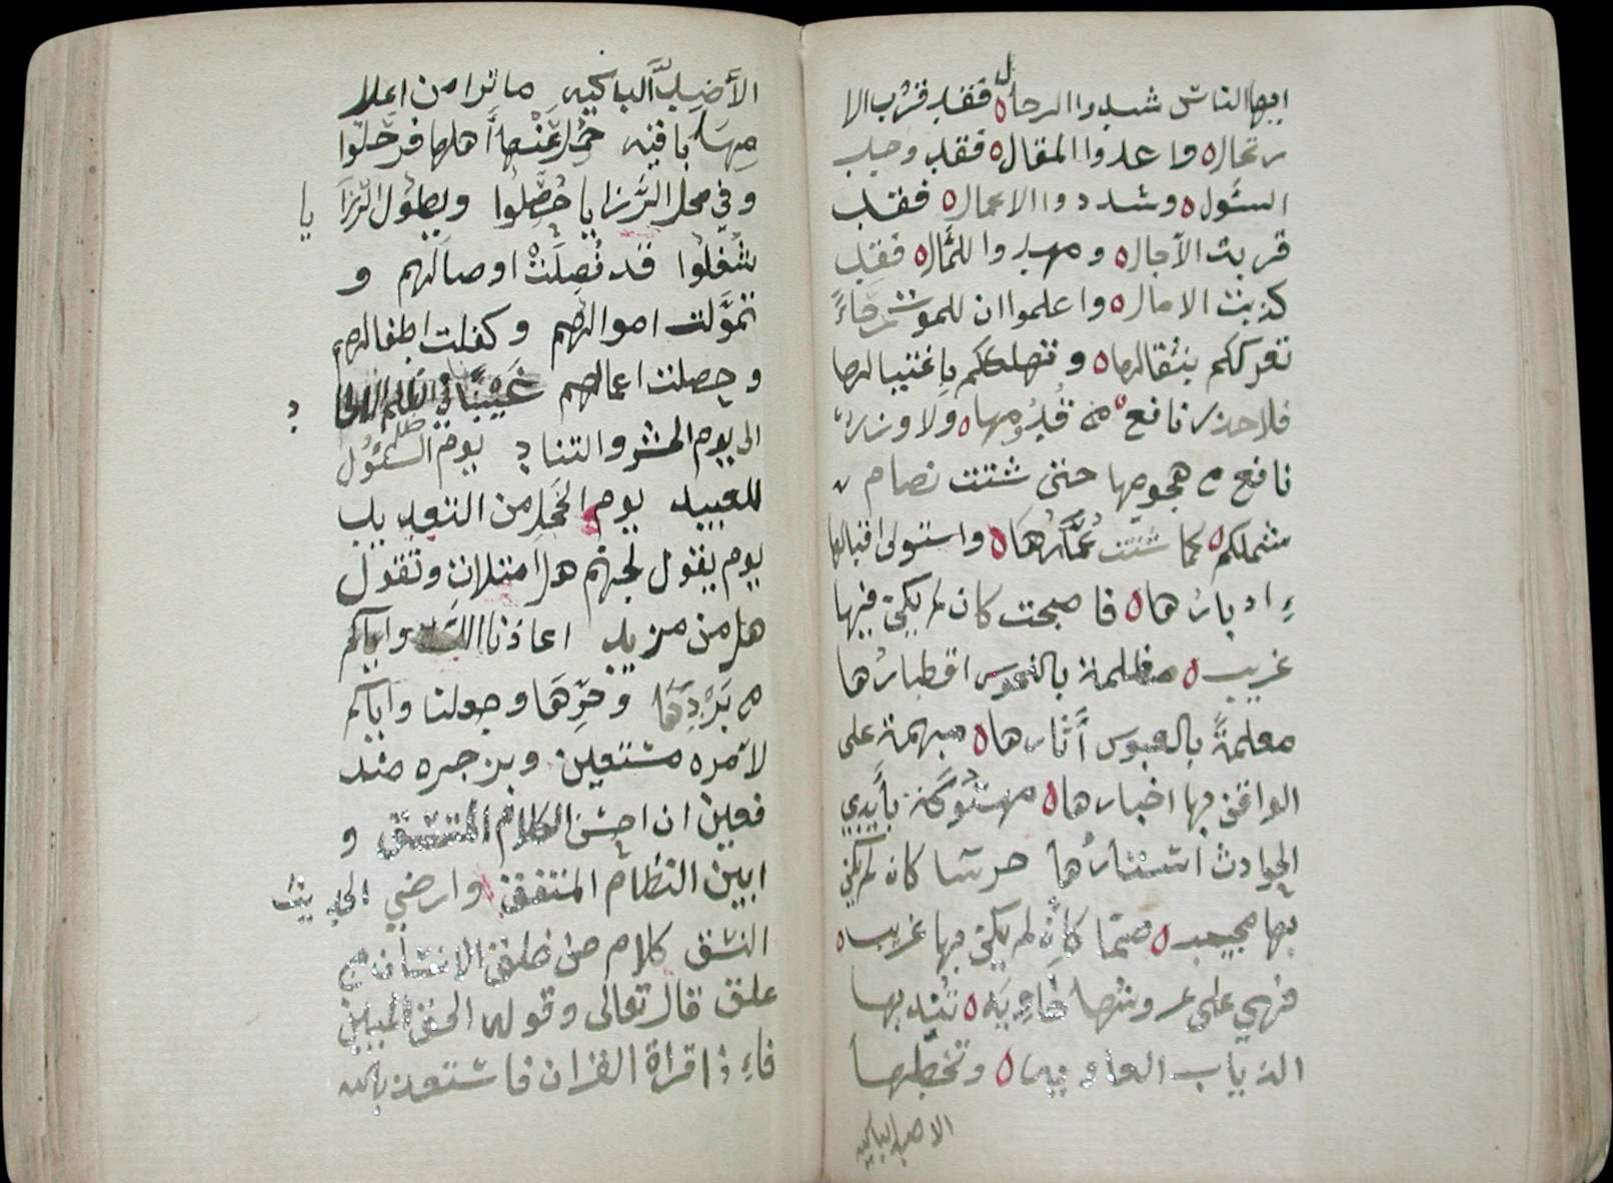 ايها الناس شدوا الرحال فقد قرب الا
رتحال واعدوا المقال فقد وجب
السئول وشددوا الاعمال فقد
قربت الآجال ومهدوا للمآل فقد
كذبت الامال واعلموا ان للموت
تعرككم بثقالها وتهلككم باغتيالها
فلا حذر نافع من قدومها ولا وزر
نافع من هجومها حتى شتت نصام
شملكم كما شتت عمارها واستولى اقبالها
ادبارها فاصبحت كان لم يكن فيها
غريب مظلمة بالنحوس اقطارها
معلمةً بالعبوس أثارها مبهمة على
الواقف بها اخبارها مهتوكة بأيدي
الحوادث استارها خرسا كان لم يكن
بها مجيب صمتا كان لم يكن بها غريب
فهي على عروشها خاوية تندبها
الذياب العاويه وتخطبها
الاصد الباكيه
الأصد الباكيه ما ترا من اعلا
مها باقيه خلا عنها أهلها فرحلوا
وفي محل الرزايا حصلوا وبطول الرزايا
شغلوا قد فصلت اوصالهم و
تموّلت اموالهم وكفلت اطفالهم
وحصلت اعمالهم
الى يوم الحشر والتناد يوم السئول
للعبيد يوم الخجل من التعديب
يوم يقول لجهنم هل امتلات وتقول
هل من مزيد اعاذنا الله واياكم
من بردها وحرها وجعلنا واياكم
لآمره مستعين وبزجره منذ
فعين ان احسن الكلام المتسق و
ابين النظام المنتفق وارضي الحديث
النسق كلام من خلق الانسان من
علق قال تعالى وقوله الحق المبين
فاءذا قراة القران فاستعذ بالله